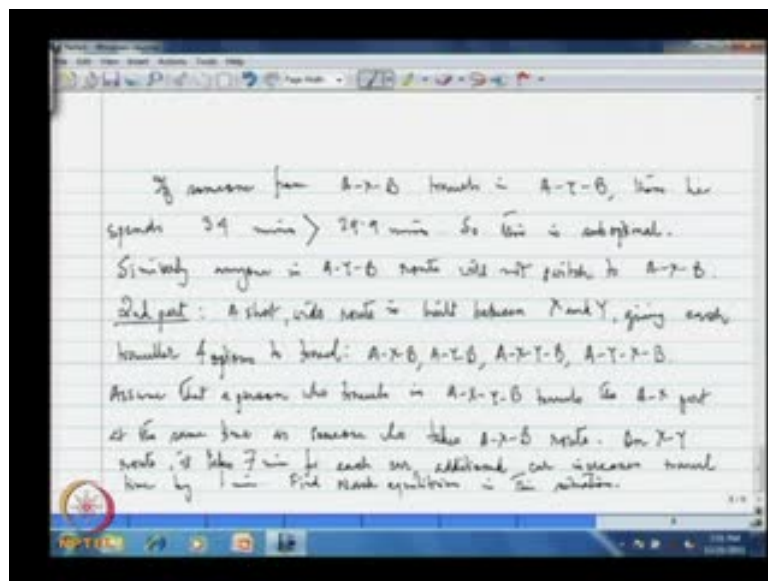 If someone from A-X-B travels in A-Y-B, then he
spends 34 mins > 29.9 mins. So this is suboptimal.
Similarly anyone in A-Y-B route will not switch to A-X-B.
2nd part: A short, wide route is built between X and Y, giving each
traveller 4 options to travel: A-X-B, A-Y-B, A-X-Y-B, A-Y-X-B.
Assume that a person who travels in A-X-Y-B travels the A-X part
at the same time as someone who takes A-X-B route. On X-Y
route, it takes 7 min for each car, additional car increases travel
time by 1 min. Find Nash equilibrium in this situation.
NPTEL